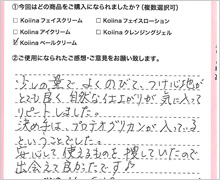 ①今回はどの商品をご購入になられましたか?(複数選択可)
□ Koiina フェイスクリーム □ Koiina フェイスローション
□ Koiina アイクリーム □ Koiina クレンジングジェル
☑ Koiina ベールクリーム
②ご使用になられたご感想・ご意見をお願い致します。
少しの量で よくのびて、つけ心地が
とても良く 自然な仕上がりが 気に入って
リピートしました。
決め手は、プロテオグリカンが 入っている
ということでした。
安心して 使えるものを 捜していたので
出会えて 良かったです♪